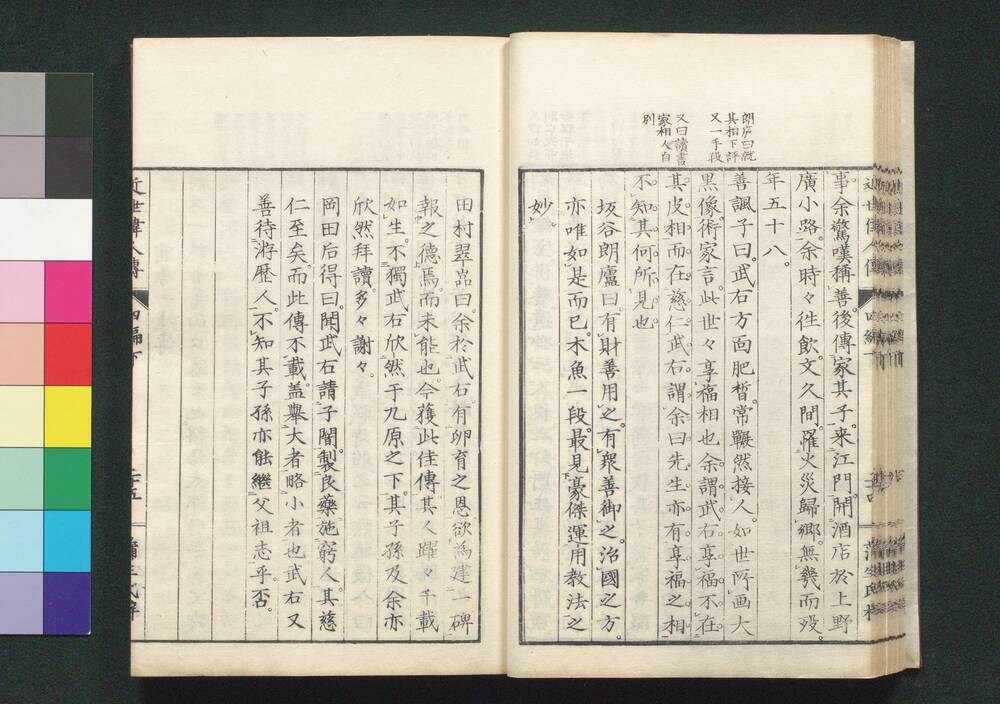 朗庐曰就
其相下評
又一手段
又曰讀書
家相人自
別
事余驚嘆稱善後傳家其子来江門開酒店於上野
廣小路余時々徃飲文久間罹火災歸鄉無幾而歿
年五十八。
善諷子曰武右方面肥皙常囅然接人如世所画大
黒像術家言此世々享福相也余謂武右享福不在
其皮相而在慈仁武右謂余曰先生亦有享福之相
不知其何所見也
坂谷朗廬曰有財善用之有衆善御之治國之方。
亦唯如是而已木魚一段最見豪傑運用教法之
妙
田村翠嵒曰余於武右有卵育之恩欲為建一碑
報之德焉而未能也今獲此佳傳其人躍々千載
如生不獨武右欣然于九原之下其子孫及余亦
欣然拜讀多々謝々
岡田后得曰聞武右請子闇製良藥施窮人其慈
仁至矣而此傳不載盖舉大者略小者也武右又
善待游歴人不知其子孫亦能繼父祖志乎否。
近世偉人傳
四編下